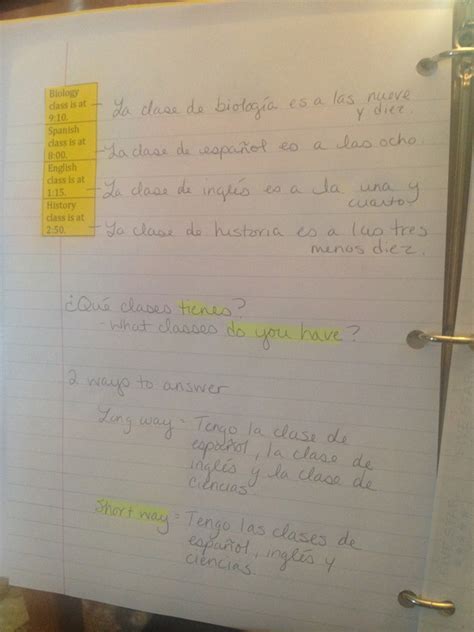 Biology
class is at
9:10.
La clase de biología es a las nueve
y diez.
Spanish
class is at
8:00.
La clase de español es a las ocho.
English
class is at
1:15.
La clase de inglés es a la una y
cuarto.
History
class is at
2:50.
La clase de historia es a las tres
menos diez.
¿Qué clases tienes?
- What classes do you have?
2 ways to answer
Long way = Tengo la clase de
español, la clase de
inglés y la clase de
ciencias.
Short way = Tengo las clases de
español, inglés y
ciencias.